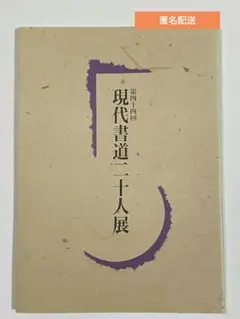 匿名配送
第四十四回
現代書道二十人展